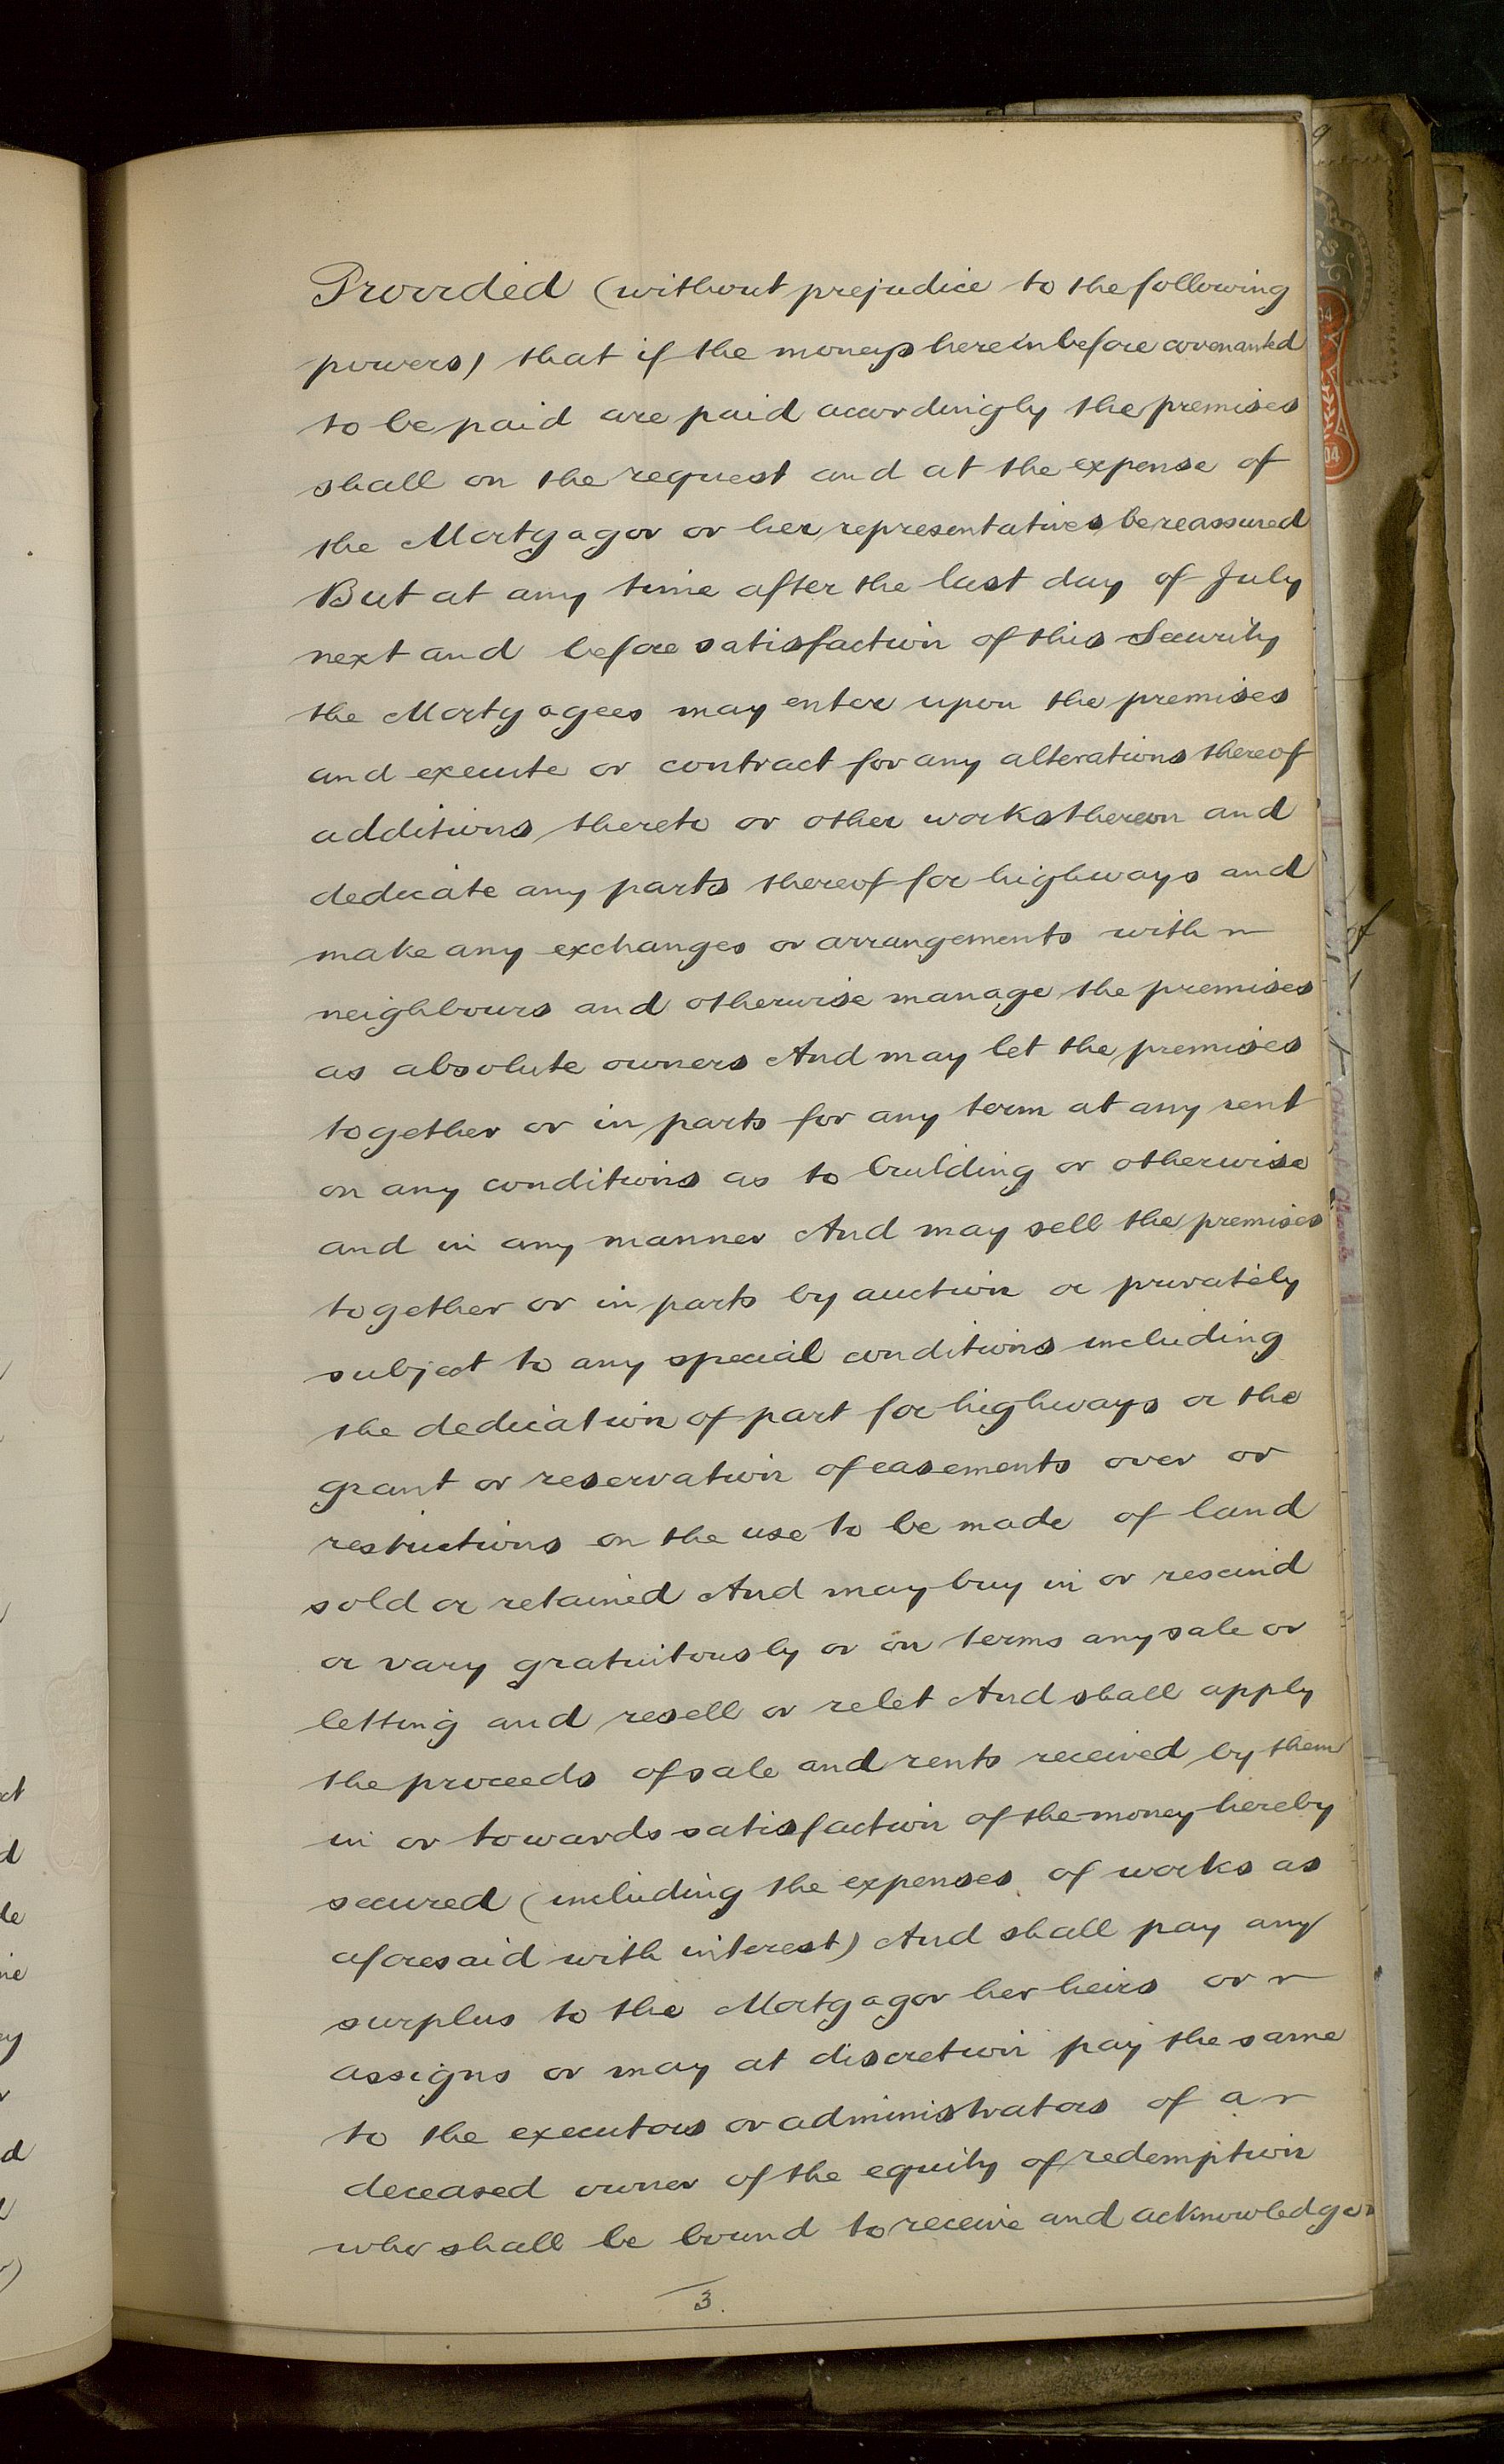 Provided (without prejudice to the following
powers) that if the moneys hereinbefore covenanted
to be paid are paid accordingly the premises
shall on the request and at the expense of
the Mortgagor or her representatives be reassured
But at any time after the last day of July
next and before satisfaction of this Security
the Mortgagees may enter upon the premises
and execute or contract for any alterations thereof
additions thereto or other works thereon and
dedicate any parts thereof for highways and
make any exchanges or arrangements with
neighbours and otherwise manage the premises
as absolute owners And may let the premises
together or in parts for any term at any rent
on any conditions as to building or otherwise
and in any manner And may sell the premises
together or in parts by auction or privately
subject to any special conditions including
the dedication of part for highways or the
grant or reservation of easements over or
restrictions on the use to be made of land
sold or retained And may buy in or rescind
or vary gratuitously or on terms any sale or
letting and resell or relet And shall apply
the proceeds of sale and rents received by them
in or towards satisfaction of the money hereby
secured (including the expenses of works as
aforesaid with interest) And shall pay any
surplus to the Mortgagor her heirs or
assigns or may at discretion pay the same
to the executors or administrators of a
deceased owner of the equity of redemption
who shall be bound to receive and acknowledge
3.